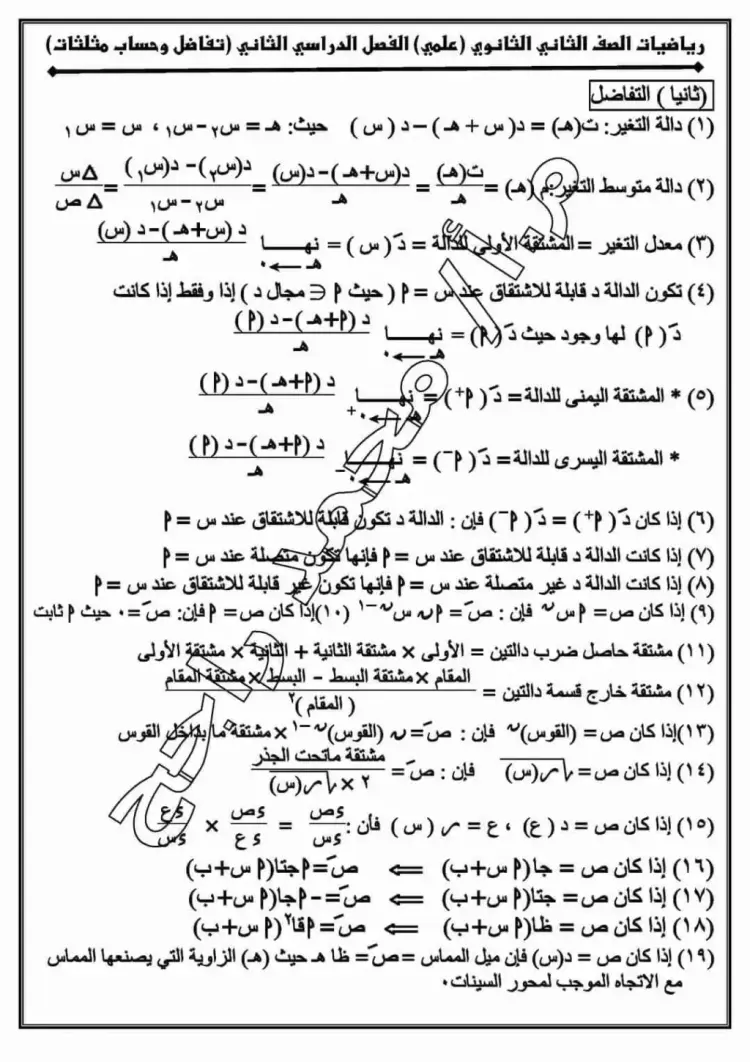 رياضيات الصف الثاني الثانوي (علمي) الفصل الدراسي الثاني (تفاضل وحساب مثلثات)
(ثانيا ) التفاضل
(١) دالة التغير: ت(هـ) = د( س + هـ ) – د ( س ) حيث: هـ = س٢ – س١ ، س = س١
(٢) دالة متوسط التغير: م (هـ) = ت(هـ)/هـ = د(س+هـ )–د(س)/هـ = د(س٢)– د(س١)/س٢ – س١ = Δس/Δ ص
(٣) معدل التغير = المشتقة الأولى للدالة = دَ ( س ) = نهــــا هـ ← ٠ د (س+هـ )–د (س)/هـ
(٤) تكون الدالة د قابلة للاشتقاق عند س = ٩ ( حيث ٩ ∈ مجال د ) إذا وفقط إذا كانت
دَ ( ٩) لها وجود حيث دَ ( ٩) = نهــــا هـ ← ٠ د (٩+هـ )–د (٩)/هـ
(٥) * المشتقة اليمنى للدالة = دَ ( ٩⁺) = نهــــا هـ ← ٠⁺ د (٩+هـ)–د (٩)/هـ
* المشتقة اليسرى للدالة = دَ ( ٩⁻) = نهــــا هـ ← ٠⁻ د (٩+هـ)–د (٩)/هـ
(٦) إذا كان دَ ( ٩⁺) = دَ ( ٩⁻) فإن : الدالة د تكون قابلة للاشتقاق عند س = ٩
(٧) إذا كانت الدالة د قابلة للاشتقاق عند س = ٩ فإنها تكون متصلة عند س = ٩
(٨) إذا كانت الدالة د غير متصلة عند س = ٩ فإنها تكون غير قابلة للاشتقاق عند س = ٩
(٩) إذا كان ص= ٩ س^ن فإن : صَ= ٩ ن س^ن–١ (١٠)إذا كان ص= ٩ فإن: صَ=٠ حيث ٩ ثابت
(١١) مشتقة حاصل ضرب دالتين = الأولى × مشتقة الثانية + الثانية × مشتقة الأولى
(١٢) مشتقة خارج قسمة دالتين = المقام × مشتقة البسط – البسط × مشتقة المقام/( المقام )٢
(١٣)إذا كان ص= (القوس)^ن فإن : صَ= ن (القوس)^ن–١ × مشتقة ما بداخل القوس
(١٤) إذا كان ص = √ر(س) فإن : صَ= مشتقة ماتحت الجذر/٢ × √ر(س)
(١٥) إذا كان ص = د ( ع) ، ع = ر ( س ) فأن : ءص/ءس = ءص/ء ع × ءع/ءس
(١٦) إذا كان ص = جا(٩ س+ب) ⇐ صَ= ٩جتا(٩ س+ب)
(١٧) إذا كان ص = جتا(٩ س+ب) ⇐ صَ= – ٩جا(٩ س+ب)
(١٨) إذا كان ص = ظا(٩ س+ب) ⇐ صَ= ٩قا٢(٩ س+ب)
(١٩) إذا كان ص = د(س) فإن ميل المماس =صَ= ظا هـ حيث (هـ) الزاوية التي يصنعها المماس
مع الاتجاه الموجب لمحور السينات٠